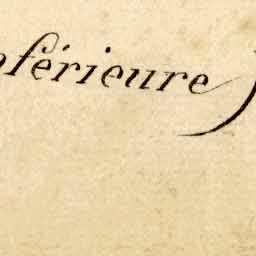 férieure)